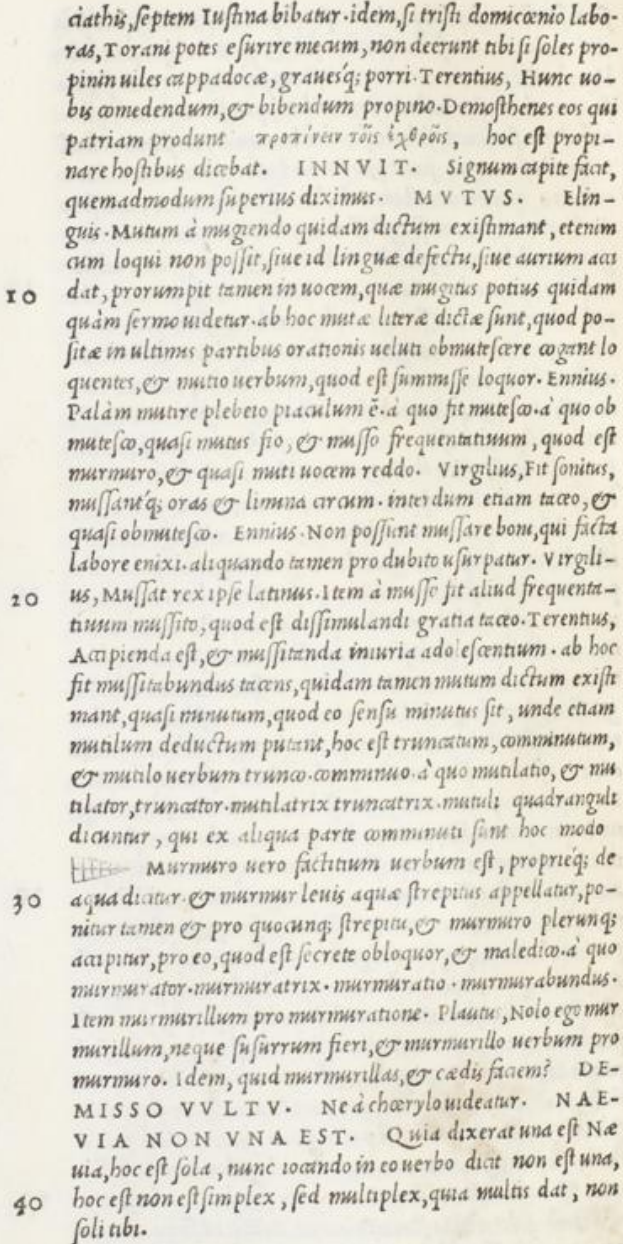 ciathis, ſeptem Iuſtina bibatur. idem, ſi triſti domicœnio labo-
ras, Torani potes eſurire mecum, non deerunt tibi ſi ſoles pro-
pinin uiles cappadocæ, graueſq; porri. Terentius, Hunc uo-
bis comedendum, & bibendum propino. Demoſthenes eos qui
patriam produnt προπίνειν τοῖς ἐχθροῖς, hoc eſt propi-
nare hoſtibus dicebat. INNVIT. Signum capite facit,
quemadmodum ſuperius diximus. MVTVS. Elin-
guis. Mutum à mugiendo quidam dictum exiſtimant, etenim
cum loqui non poſſit, ſiue id linguæ defectu, ſiue aurium acci
10 dat, prorumpit tamen in uocem, quæ mugitus potius quidam
quàm ſermo uidetur. ab hoc mutæ literæ dictæ ſunt, quod po-
ſitæ in ultimis partibus orationis ueluti obmuteſcere cogant lo
quentes, & mutio uerbum, quod eſt ſummiſſe loquor. Ennius.
Palàm mutire plebeio piaculum ē. à quo fit muteſco. à quo ob
muteſco, quaſi mutus fio, & muſſo frequentatiuum, quod eſt
murmuro, & quaſi muti uocem reddo. Virgilius, Fit ſonitus,
muſſantq́; oras & limina circum. interdum etiam taceo, &
quaſi obmuteſco. Ennius. Non poſſunt muſſare boni, qui facta
labore enixi. aliquando tamen pro dubito uſurpatur. Virgili-
20 us, Muſſat rex ipſe latinus. Item à muſſo fit aliud frequenta-
tiuum muſſito, quod eſt diſſimulandi gratia taceo. Terentius,
Accipienda eſt, & muſſitanda iniuria adoleſcentium. ab hoc
fit muſſitabundus tacens, quidam tamen mutum dictum exiſti
mant, quaſi minutum, quod eo ſenſu minutus ſit, unde etiam
mutilum deductum putant, hoc eſt truncatum, comminutum,
& mutilo uerbum trunco. comminuo. à quo mutilatio, & mu
tilator, truncator. mutilatrix truncatrix. mutuli quadranguli
dicuntur, qui ex aliqua parte comminuti ſunt hoc modo
Murmuro uero factitium uerbum eſt, proprieq́; de
30 aqua dicitur. & murmur leuis aquæ ſtrepitus appellatur, po-
nitur tamen & pro quocunq; ſtrepitu, & murmuro plerunq;
accipitur, pro eo, quod eſt ſecrete obloquor, & maledico. à quo
murmurator. murmuratrix. murmuratio. murmurabundus.
Item murmurillum pro murmuratione. Plautus, Nolo ego mur
murillum, neque ſuſurrum fieri, & murmurillo uerbum pro
murmuro. Idem, quid murmurillas, & cædis faciem? DE-
MISSO VVLTV. Ne à chœrylo uideatur. NAE-
VIA NON VNA EST. Quia dixerat una eſt Næ
uia, hoc eſt ſola, nunc iocando in eo uerbo dicit non eſt una,
40 hoc eſt non eſt ſimplex, ſed multiplex, quia multis dat, non
ſoli tibi.